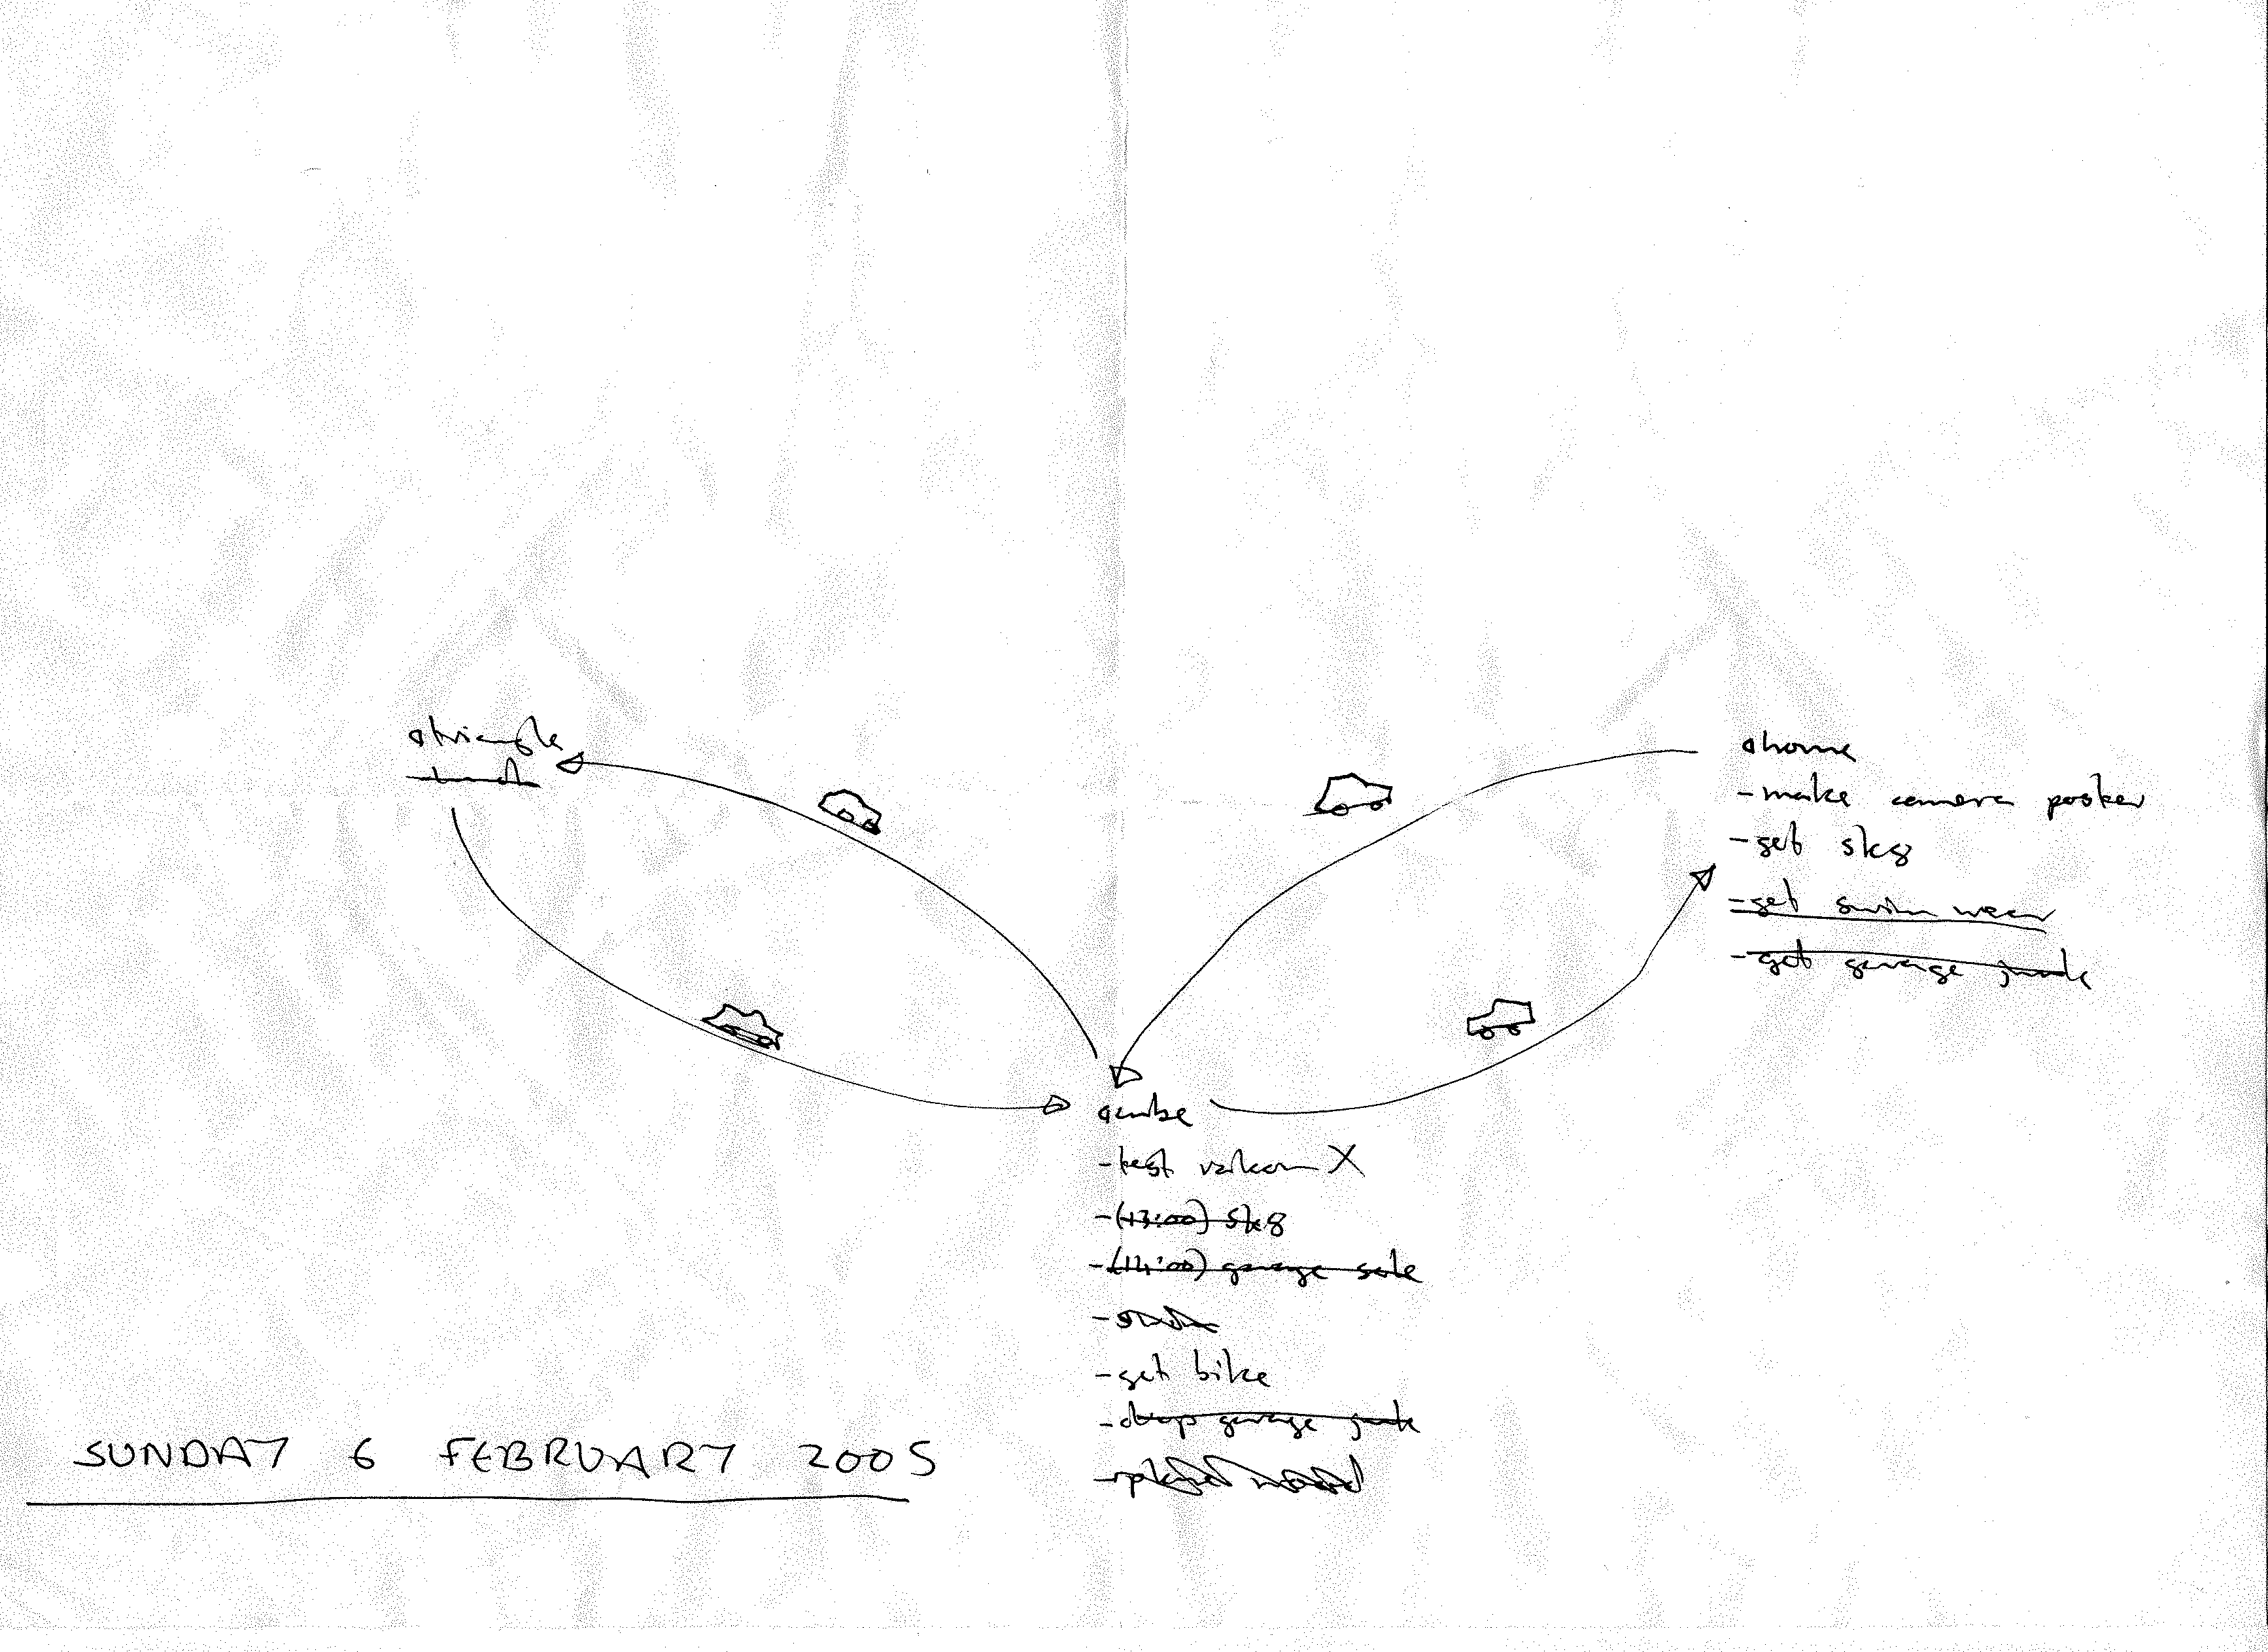 triangle
lunch
home
- make camera poster
- get sk8
- get swim wear
- get garage junk
cube
- test valcom X
- (13:00) sk8
- (14:00) garage sale
- get bike
- drop garage junk
SUNDAY 6 FEBRUARY 2005